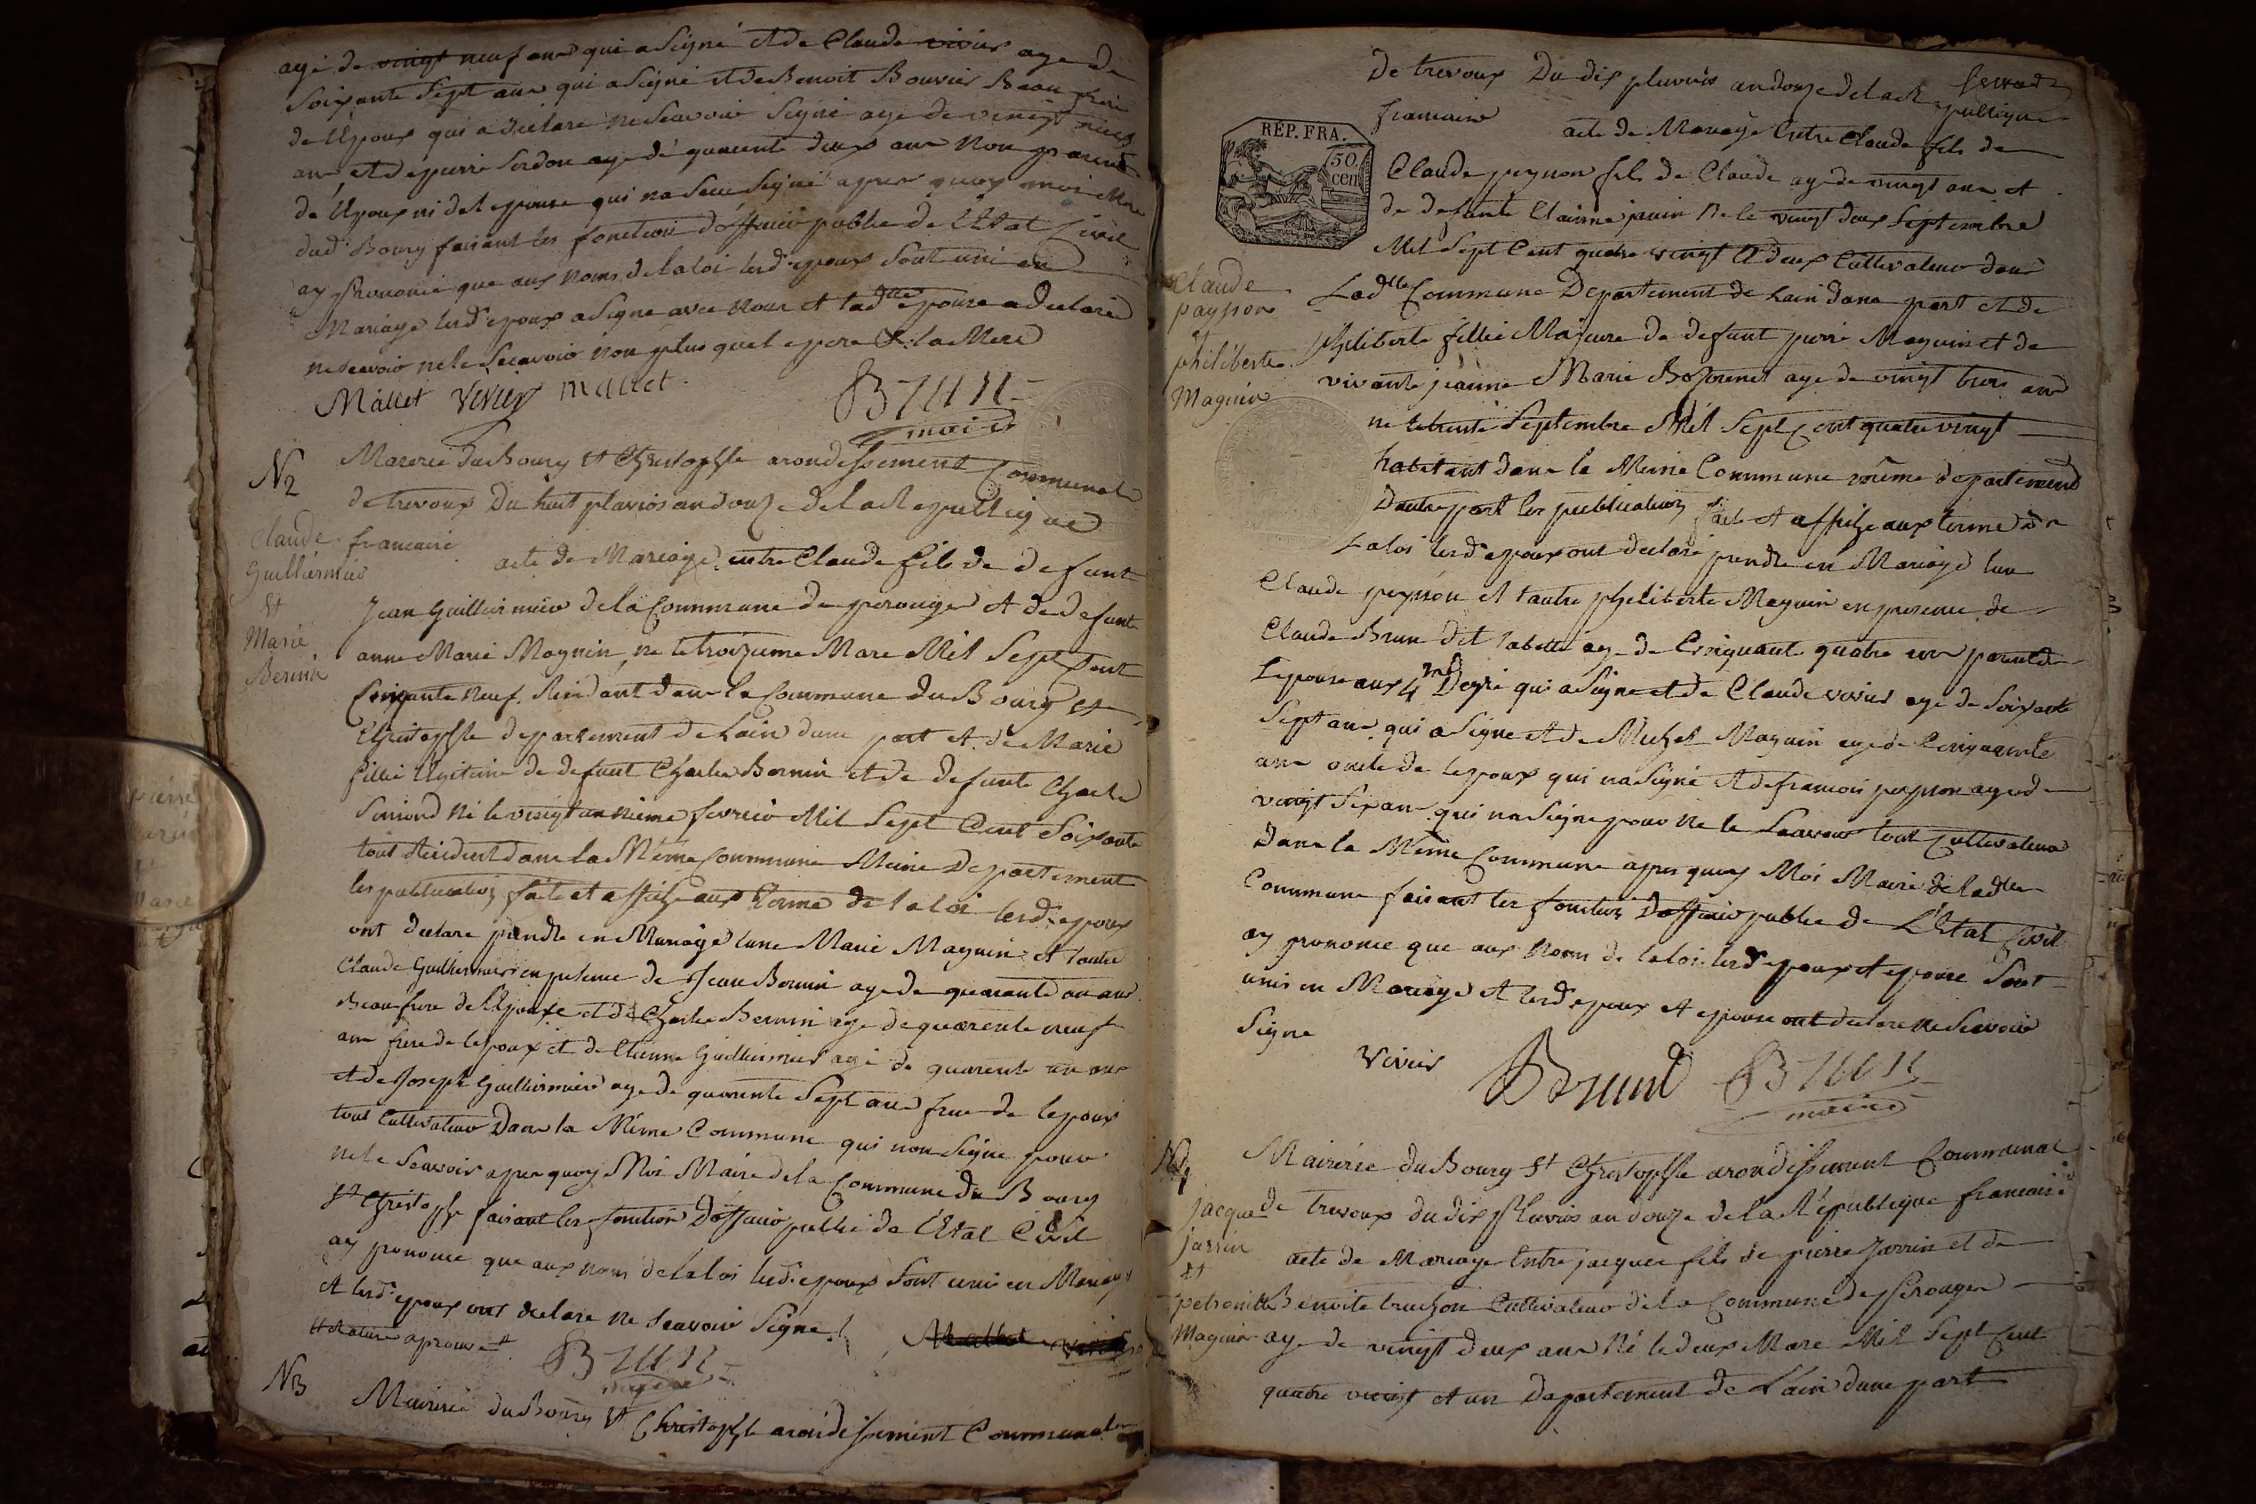 agé de vingt neuf ans qui a Signé et de Claude vivier age de
Soixante Sept ans qui a Signé et de Benoit Bouvier Beau frere
de lepoux qui a declare ne Seavoir Signé age de vingt
ans et de pierre Sordon age de quarente deux ans Non parent
de lepoux ni de lepouse qui na Seu Signé apres quoy moi Maire
dud. Bourg faisant les fonction dofficier public de l'Etat Civil
ay prononcé que aux Noms de la loi lesd. epoux Sont uni en
Mariage lesd. epoux a Signe avec Nous et ladtte epouse a declaré
ne Seavoir ne le Seavoir Non plus que le pere et la Mere
Mallet vivier mallet
Brun
maire
N2
Claude
Guillermier
et
Marie
Bernin
Mairerie du Bourg St Christophle arondissement Communal
de trevoux Du huit pluvios an douze de la Republique
francaise acte de Mariage entre Claude fils de defunt
Jean Guillermier de la Commune de perouge et de defunte
anne Marie Magnin, ne le troizieme Mars Mil Sept Cent
Soixante Neuf. Residant dans la Commune du Bourg St
Christophle departement de Lain dune part et de Marie
fillie legitime de defunt Charle Bernin et de defunte Charle
Simond Né le vingt unnieme fevrier Mil Sept Cent Soixante
tout Resident dans la Même Commune Meme Departement
les publication faite et affiche aux terme de la loi lesd. epoux
ont declare prendre en Mariage lune Marie Magnin et lautre
Claude Guillermier en presence de Jean Bernin age de quarante un ans
Beau frere de lEpouse et de Charle Bernin age de quarente neuf
ans frere de lepoux et de Etienne Guillermier agé de quarente un ans
et de Joseph Guillermier age de quarente Sept ans frere de lepoux
tous Cultivateur Dans la Même Commune qui non Signe pour
ne le Seavoir apres quoy Moi Maire de la Commune du Bourg
St Christophe faisant les fonction Dofficier public de l'Etat Civil
ay prononce que aux Noms de la loi lesd. epoux Sont unis en Mariage
et lesd. epoux ont declare Ne Seavoir Signé
et Rature aprouvee
Brun
maire
Mallet vivier
N3
Mairerie du Bourg St Christophle arondissement Communal
de trevoux Du dix pluvios an douze de la Republique
francaise acte de Mariage Entre Claude fils de
REP. FRA.
50
cen
Claude
payson
et
philiberte
Magnin
Claude peysson fils de Claude age de vingt ans et
de defunte Claudine janin Né le vingt deux Septembre
Mil Sept Cent quatre vingt et deux Cultivateur dans
Ladtte Commune Departement de Lain dune part et de
philiberte fillie Majeure de defunt pierre Magnin et de
vivante jeanne Marie Bozonnet age de vingt trois ans
ne le trente Septembre Mil Sept Cent quatre vingt
habitant dans la Meme Commune même departement
Dautre part les publication faite et affiche aux terme de
La loi lesd. epoux ont declaré prendre en Mariage lun
Claude peysson et lautre pheliberte Magnin en presence de
Claude Brun dit labette age de Cinquante quatre ans parent de
Lepouse aux 4me Degré qui a Signe et de Claude vivier age de Soixante
Sept ans qui a Signe et de Michel Magnin age de Cinquante
ans oncle de lepoux qui na Signé et de francois peysson age de
vingt Six ans qui na Signe pour Ne le Seavoir tous Cultivateur
Dans la Même Commune apres quoy Moi Maire de ladtte
Commune faisant les fonction Dofficier public de L'Etat Civil
ay prononce que aux Noms de la loi lesd. epoux et epouse Sont
unis en Mariage et lesd. epoux et epouse ont declare Ne Seavoir
Signe
Vivier Brun Brun
maire
N4
jacque
jarrin
et
petronille
Magnin
Mairerie du Bourg St Christophle arondissement Communal
de trevoux du dix Pluvios an douze de la Republique francaise
acte de Mariage Entre jacques fils de pierre Jarrin et de
Benoite truchon Cultivateur de la Commune de Perouge
age de vingt deux ans Né le deux Mars Mil Sept Cent
quatre vingt et un Departement de Lain dune part